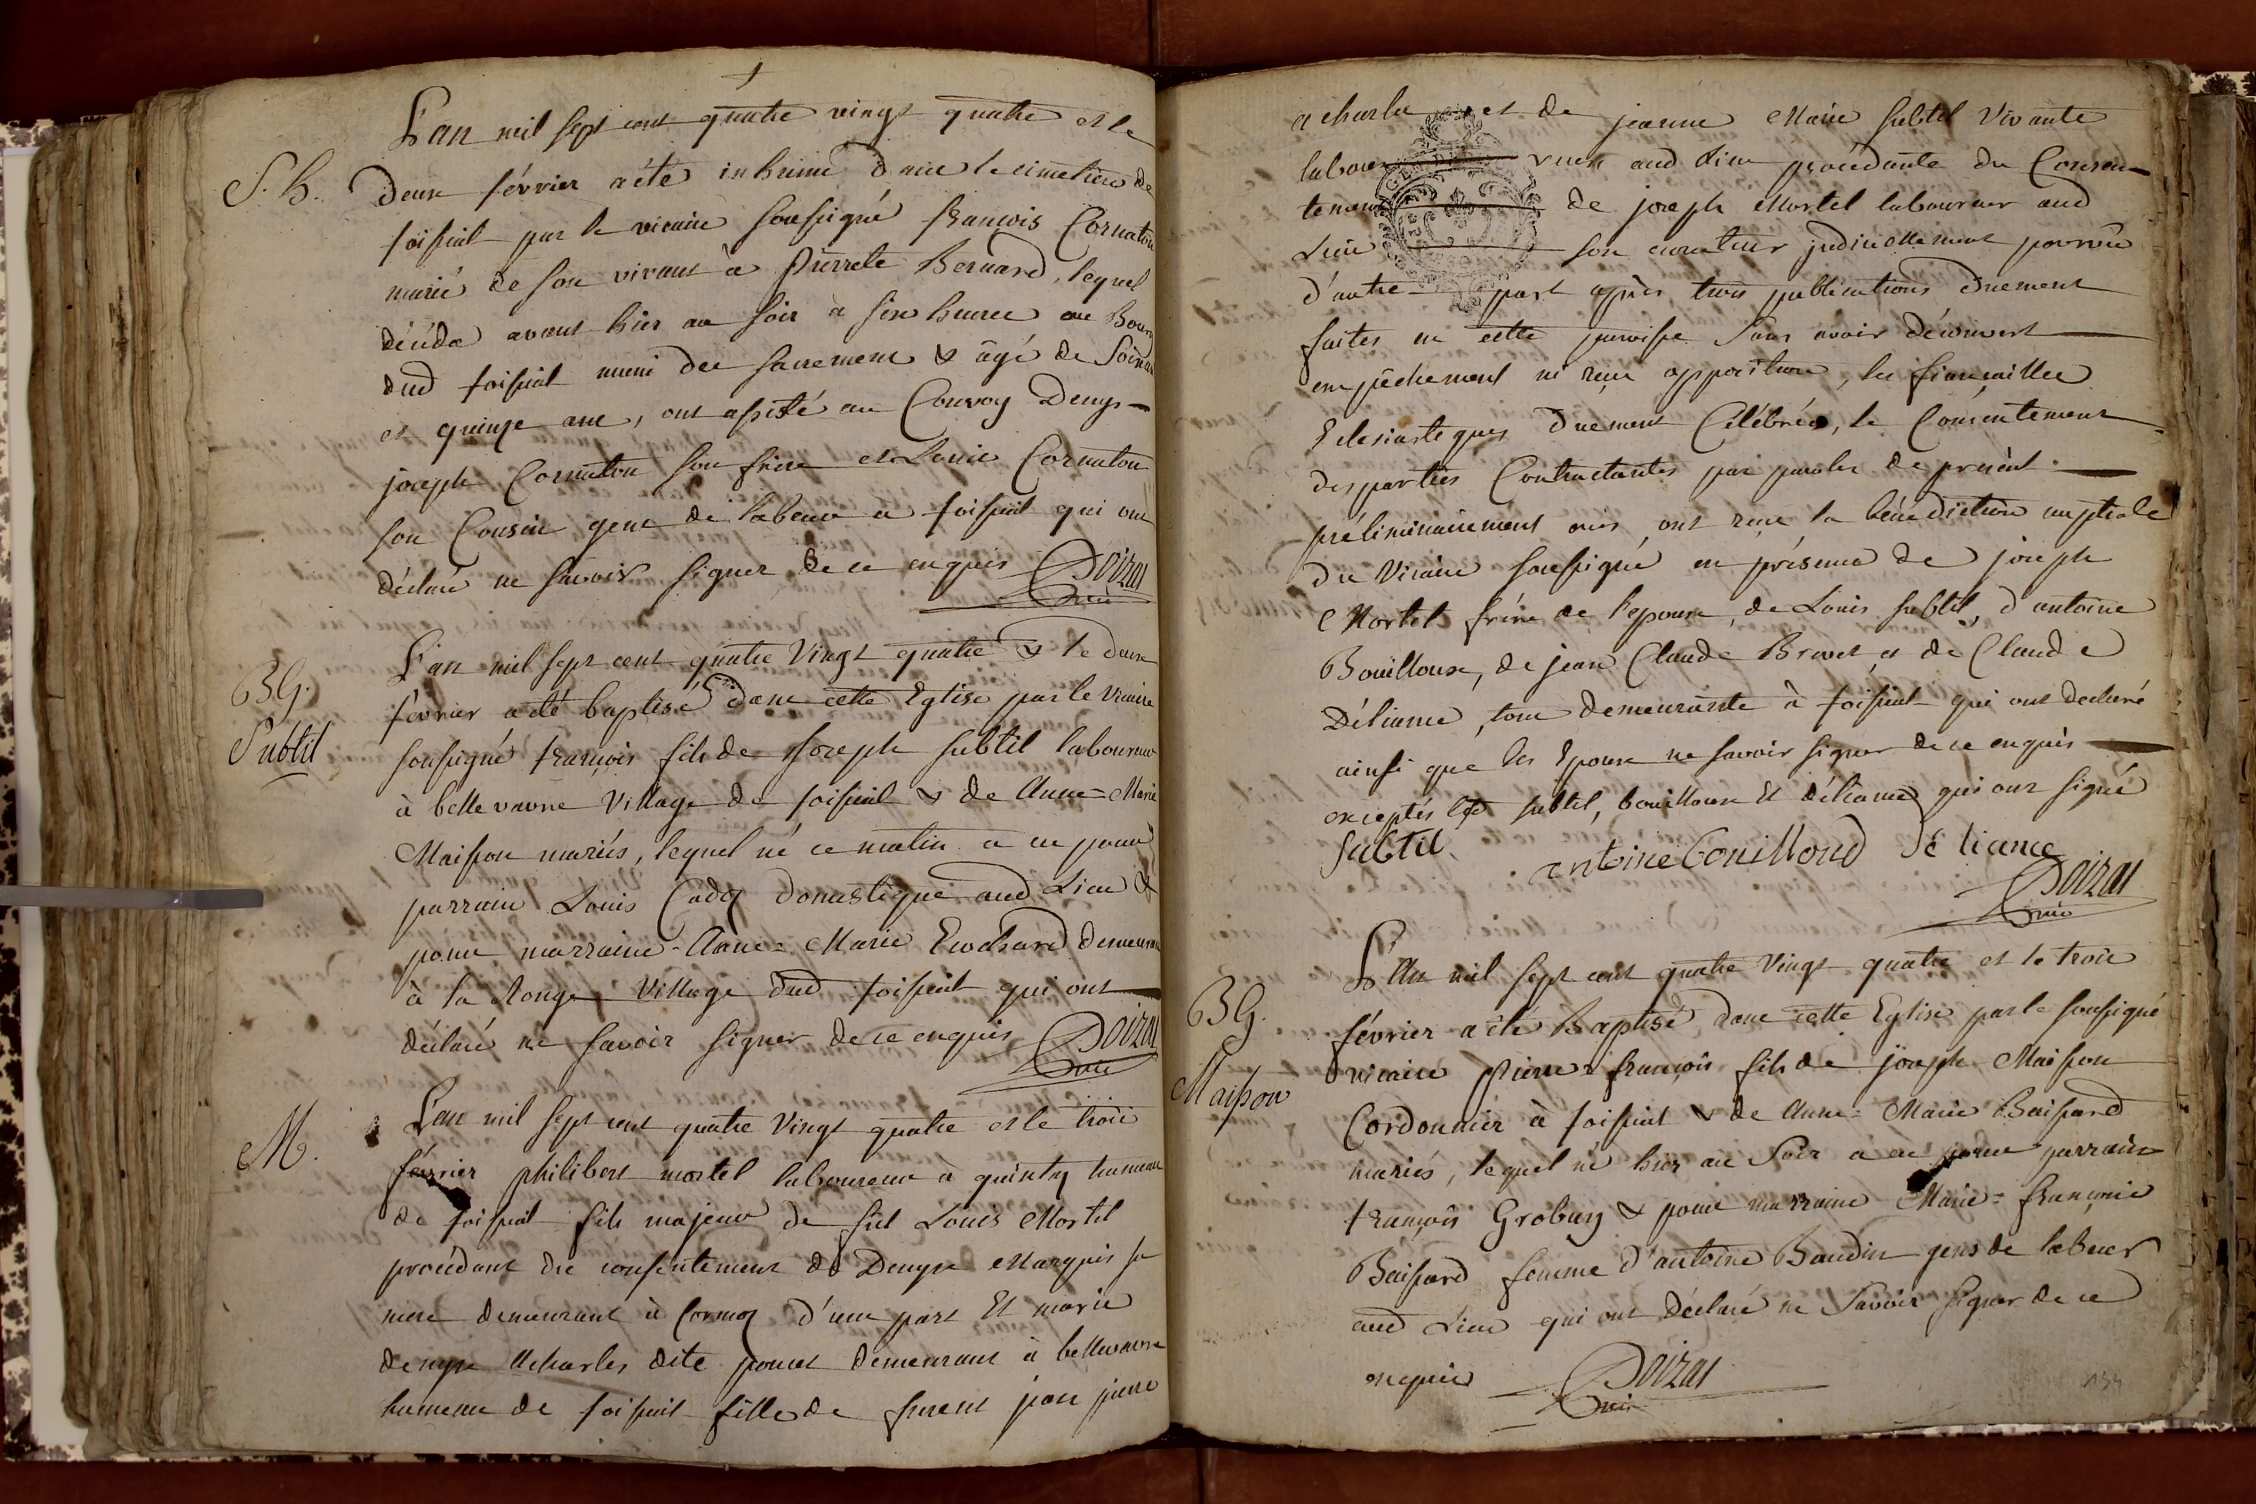 L'an mil sept cent quatre vingt quatre et le
S. h. deux février a été inhumé dans le cimetiere de
foissiat par le vicaire soussigné francois Cornaton
marié de son vivant à pierrete Bernard, lequel
décéda avant hier au soir à six heures au Bourg
dud foissiat muni des sacrement & âgé de soixante
et quinze ans, ont assisté au Convoy Denys
joseph Cornaton son frere et Louis Cornaton
son Cousin gens de labeur a foissiat qui ont
déclaré ne savoir signer de ce enquis Doizat
vic
L'an mil sept cent quatre Vingt quatre & le deux
BG.
Subtil
février a été baptisé dans cette Eglise par le Vicaire
soussigné françois fils de joseph subtil laboureur
à belle vavre Village de foissiat & de Anne=Marie
Maisson mariés, lequel né ce matin a eu pour
parrain Louis Cadoz domestique aud Lieu &
pour marraine Anne=Marie Ewchard demeurant
à la Ronge Village dud foissiat qui ont
déclaré ne savoir signer de ce enquis Doizat
vic
M.
L'an mil sept cent quatre Vingt quatre et le trois
février philibert mortel laboureur à quinty hameau
de foissiat fils majeur de fut Louis Mortel
procédant du consentement de Denyse Marquis sa
mere demeurant à Cormoz d'une part Et marie
denyse Acharles dite poncet demeurant à bellevavre
hameau de foissiat fille de furent jean pierre
acharle et de jeanne Marie subtil Vivante
labour aud Lieu procédante du Consen-
temen de joseph Mortel laboureur aud
Lieu son curateur judiciellement pourvû
d'autre part après trois publications duement
faites en cette paroisse sans avoir découvert
empêchement ni reçu opposition, les fiançailles
Eclesiastiques duement Célébrées, le Consentement
des parties Contractantes par paroles de présent
préliminairement ouis, ont reçu la bénédiction nuptiale
du Vicaire soussigné en présence de joseph
Mortel frère de l'epoux, de Louis subtil, d'antoine
Bouilloux, de jean Claude Brevet et de Claude
Déliance, tous demeurants à foissiat qui ont declaré
ainsi que les Epoux ne savoir signer de ce enquis
exceptés subtil, bouilloux Et déliance qui ont signé
Subtil antoine bouilloud Dé liance
Doizat
vic
L'An mil sept cent quatre Vingt quatre et le trois
BG.
Maisson
février a été Baptisé dans cette Eglise par le soussigné
vicaire pierre=françois fils de joseph Maisson
Cordonnier à foissiat & de Anne=Marie Baissard
mariés, lequel né hier au Soir a eu pour parrain
françois Grobuy & pour marraine Marie=françoise
Baissard femme d'antoine Baudin gens de labeur
aud Lieu qui ont déclaré ne Savoir signer de ce
enquis Doizat
vic